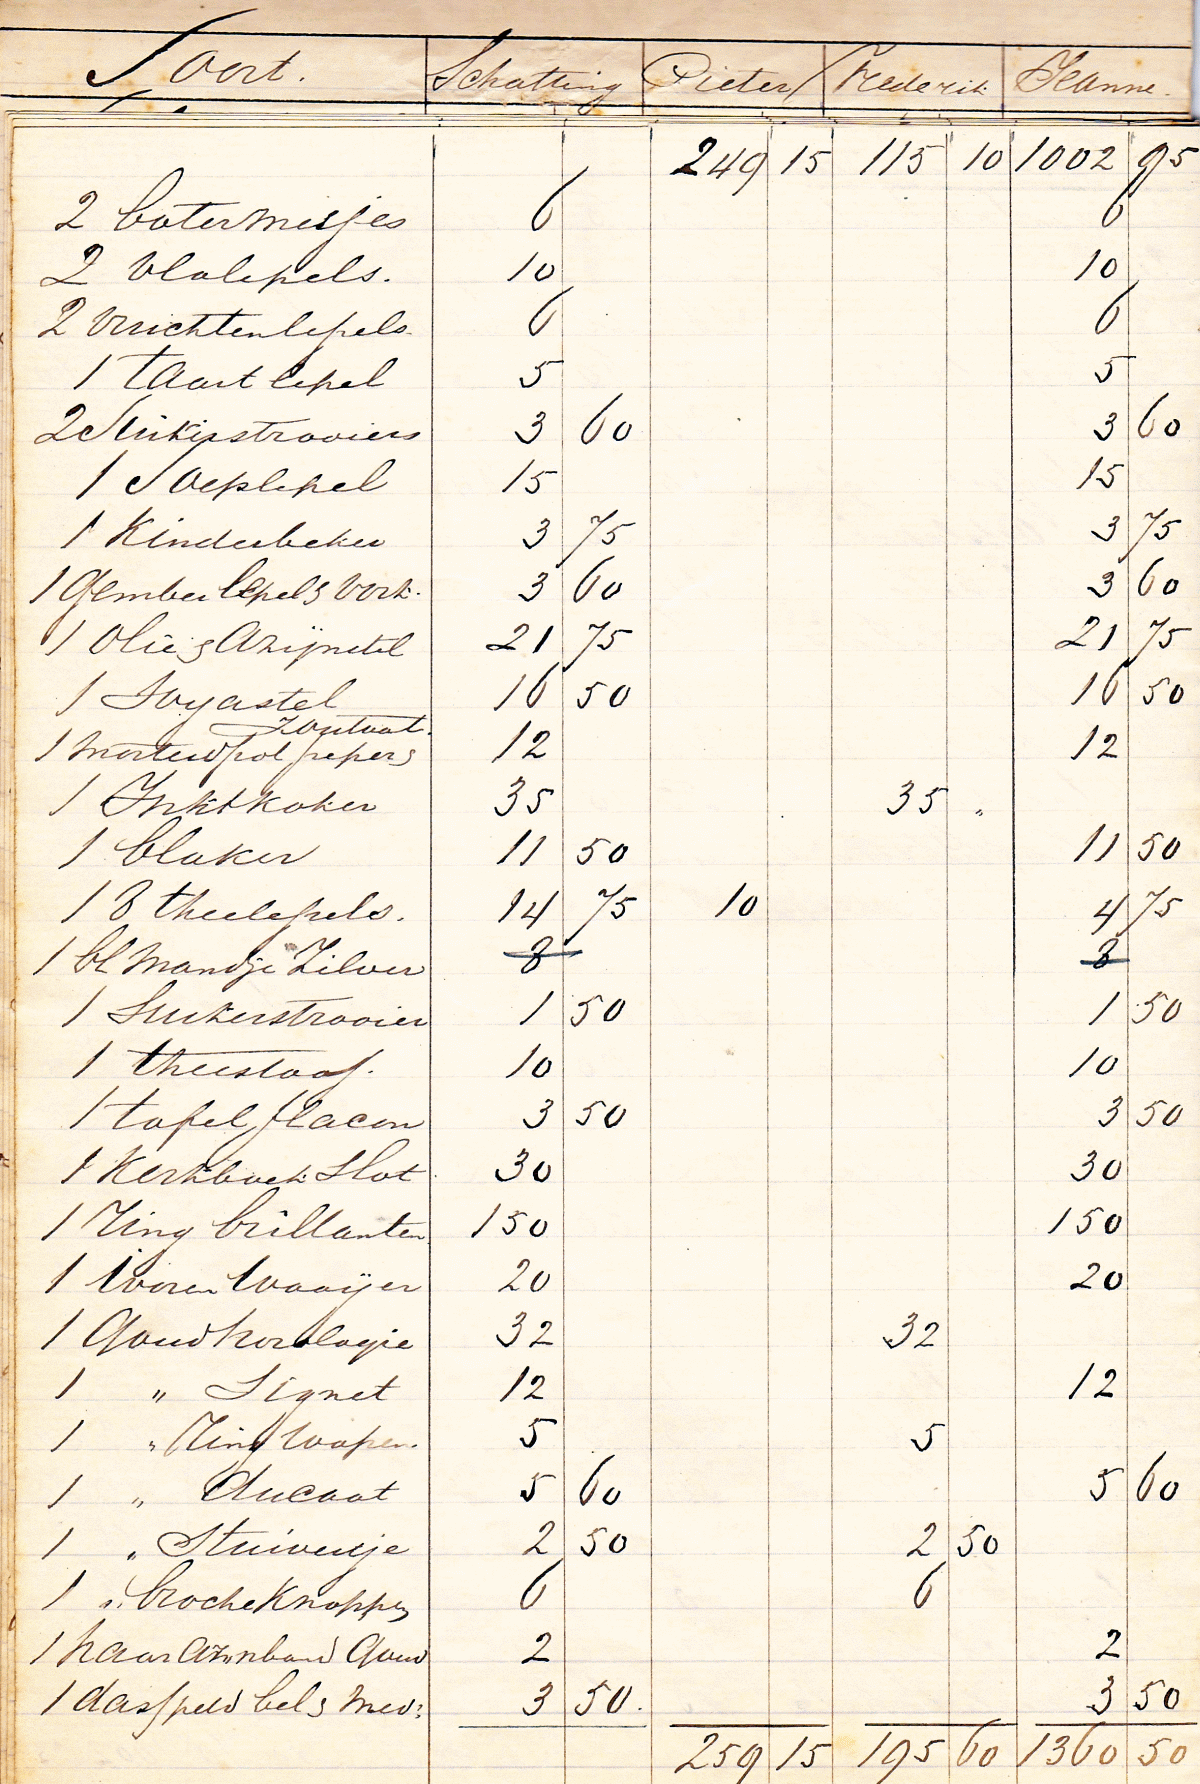 Soort. Schatting Pieter Frederik Jeanne.
249 15 115 10 1002 95
2 botermesjes 6 6
2 Vlalepels. 10 10
2 Vruchtenlepels 6 6
1 taart lepel 5 5
2 Suikerstrooiers 3 60 3 60
1 Soeplepel 15 15
1 Kinderbeker 3 75 3 75
1 Gember lepel & Vork. 3 60 3 60
1 Olie & Azijnstel 21 75 21 75
1 Soyastel 16 50 16 50
Zoutvat.
1 Mosterdpot peper & 12 12
1 Inktkoker 35 35 "
1 blaker 11 50 11 50
1 8 theelepels. 14 75 10 4 75
1 bl Mandje Zilver 8 8
1 Suikerstrooier 1 50 1 50
1 theestoof. 10 10
1 tafel flacon 3 50 3 50
1 Kerkboek Slot 30 30
1 Ring brillanten 150 150
1 Ivoren Waaijer 20 20
1 Goud horologie 32 32
1 " Signet 12 12
1 " Ring Wapen. 5 5
1 " ducaat 5 60 5 60
1 " Stuivertje 2 50 2 50
1 " broche Knoppen 6 6
1 haar Armband Goud 2 2
1 dasspeld bel & Med: 3 50. 3 50
259 15 195 60 1360 50